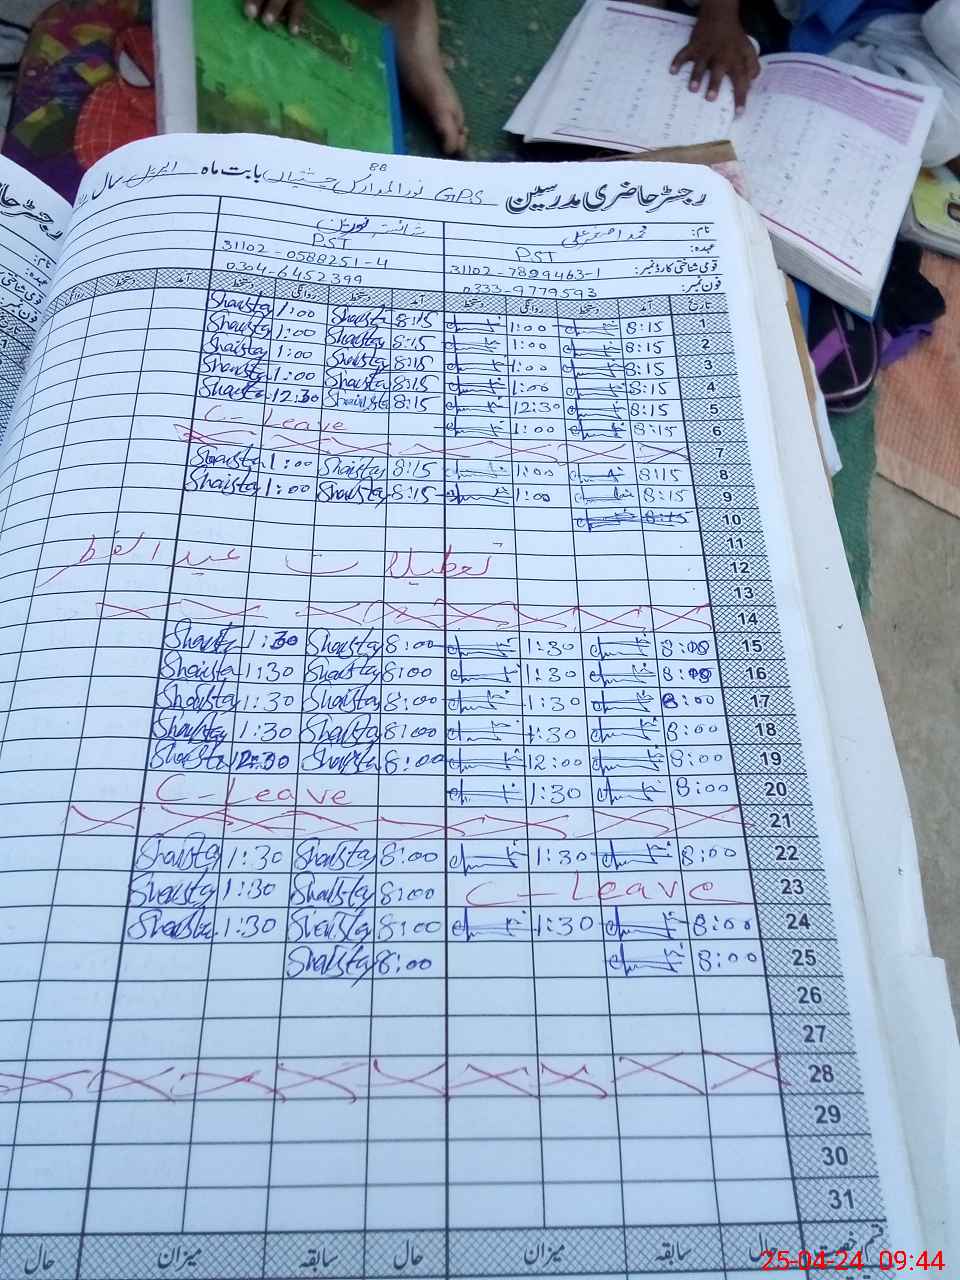 رجسٹر حاضری مدرسین GPS بابت ماہ اپریل سال
نام: محمد اصغر علی
عہدہ: PST PST
قومی شناختی کارڈ نمبر: 31102-7899463-1 31102-0588251-4
فون نمبر: 0333-9779593 0304-6452399
تاریخ آمد دستخط روانگی دستخط آمد دستخط روانگی دستخط آمد
1 8:15 1:00 8:15 Shaista 1:00 Shaista
2 8:15 1:00 8:15 Shaista 1:00 Shaista
3 8:15 1:00 8:15 Shaista 1:00 Shaista
4 8:15 1:00 8:15 Shaista 1:00 Shaista
5 8:15 12:30 8:15 Shaista 12:30 Shaista
6 8:15 1:00 C-Leave
7
8 8:15 1:00 8:15 Shaista 1:00 Shaista
9 8:15 1:00 8:15 Shaista 1:00 Shaista
10 8:15
11
12 تعطیلات عید الفطر
13
14
15 8:00 1:30 8:00 Shaista 1:30 Shaista
16 8:00 1:30 8:00 Shaista 1:30 Shaista
17 8:00 1:30 8:00 Shaista 1:30 Shaista
18 8:00 1:30 8:00 Shaista 1:30 Shaista
19 8:00 12:00 8:00 Shaista 12:30 Shaista
20 8:00 1:30 C-Leave
21
22 8:00 1:30 8:00 Shaista 1:30 Shaista
23 C-Leave 8:00 Shaista 1:30 Shaista
24 8:00 1:30 8:00 Shaista 1:30 Shaista
25 8:00 8:00 Shaista
26
27
28
29
30
31
قسم رخصت حال سابقہ میزان حال سابقہ میزان حال
25-04-24 09:44